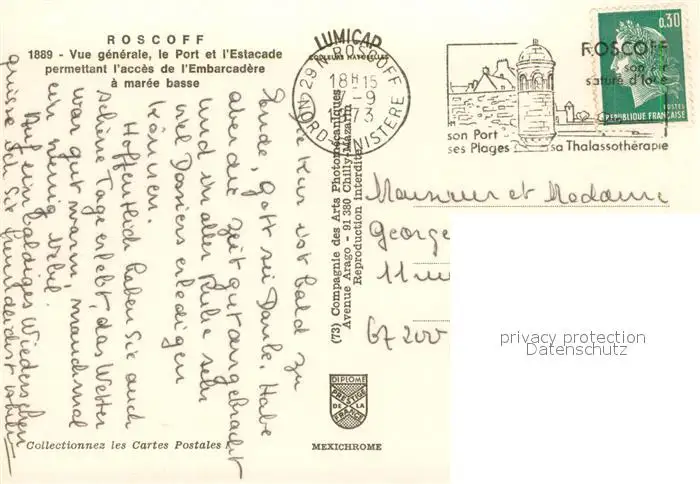 ROSCOFF
1889 - Vue générale, le Port et l'Estacade
permettant l'accès de l'Embarcadère
à marée basse
LUMICAP
COULEURS NATURELLES
29 N ROSCOFF
18H15
-9
73
NORD FINISTERE
ROSCOFF
son
saturé d'iode
son Port
ses Plages
sa Thalassothérapie
0,30
POSTES
REPUBLIQUE FRANCAISE
Die Kur ist bald zu
Ende, Gott sei Danke. Habe
aber die Zeit gut angebracht
und in aller Ruhe sehr
viel Dossiers erledigen
können.
Hoffentlich haben Sie auch
schöne Tage erlebt, das Wetter
war gut warm, manchmal
ein wenig Nebel.
Auf ein baldiges Wiedersehen
grüsse ich Sie freundlichst
(73) Compagnie des Arts Photomécaniques
Avenue Arago - 91 380 Chilly-Mazarin
Reproduction interdite
Monsieur et Madame
George
11 rue
67200
privacy protection
Datenschutz
DIPLOME
PRESTIGE
DE LA
FRANCE
Collectionnez les Cartes Postales
MEXICHROME